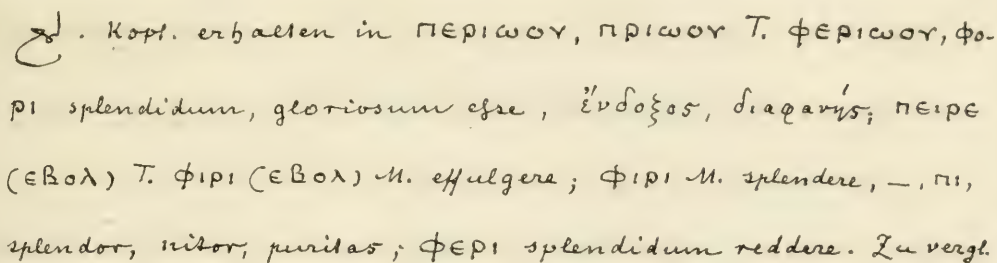 . Kopt. erhalten in ⲡⲉⲣⲓⲱⲟⲩ, ⲡⲣⲓⲱⲟⲩ T. ⲫⲉⲣⲓⲱⲟⲩ, ⲫⲟ-
ⲣⲓ splendidum, gloriosum esse, ἔνδοξος, διαφανής; ⲡⲉⲓⲣⲉ
(ⲉⲃⲟⲗ) T. ⲫⲓⲣⲓ (ⲉⲃⲟⲗ) M. effulgere; ⲫⲓⲣⲓ M. splendere, –, ⲡⲓ,
splendor, nitor, puritas; ⲫⲉⲣⲓ splendidum reddere. Zu vergl.